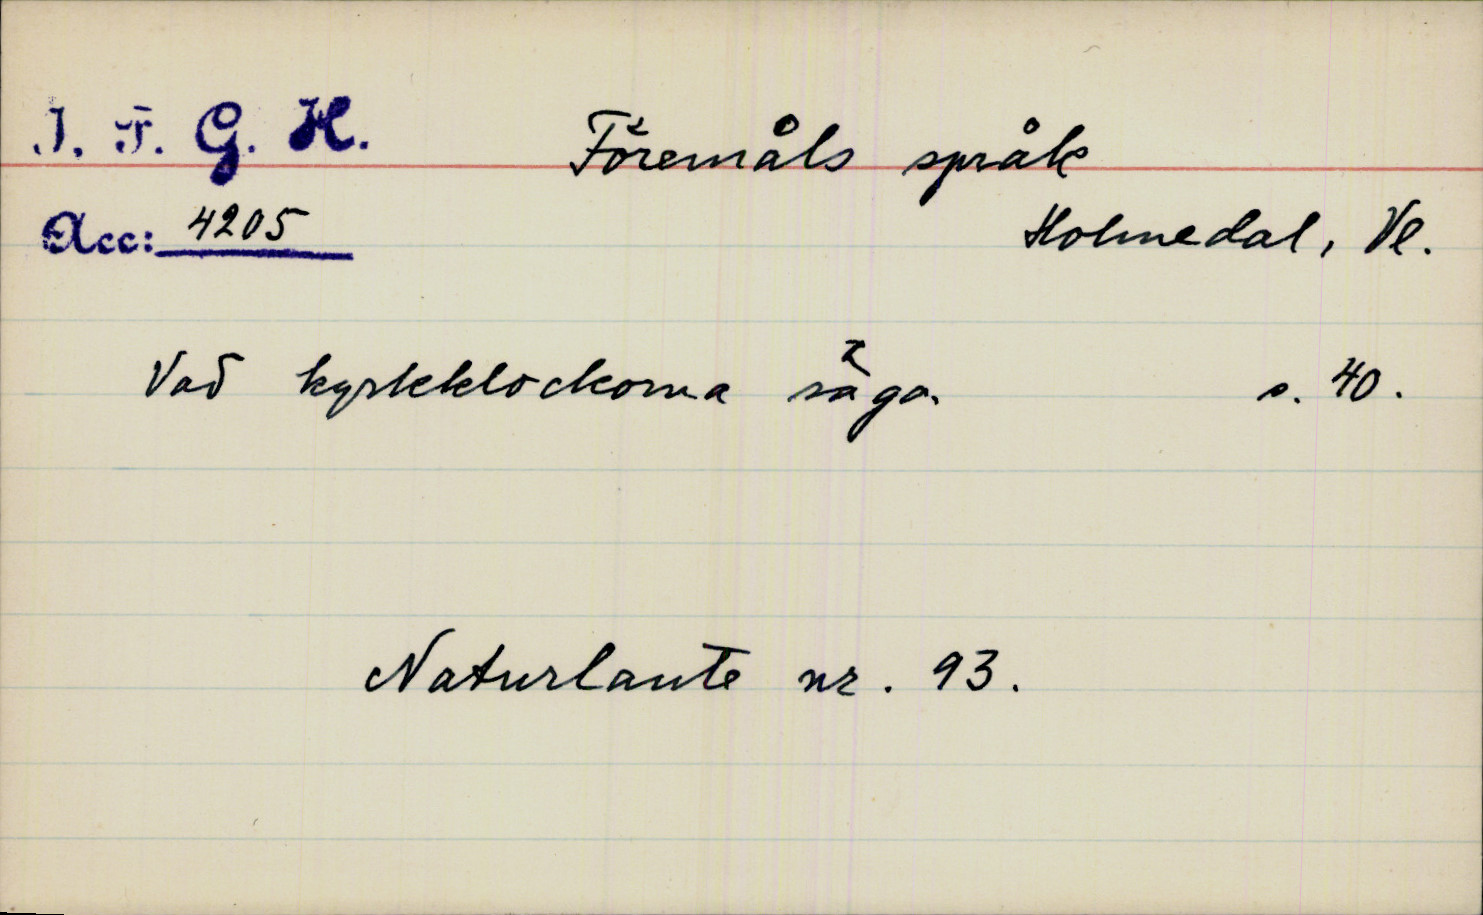 I. F. G. H. Föremåls språk
Acc: 4205 Holmedal, Vl.
Vad kyrkklockorna säga. s. 40.
Naturlaute nr. 93.